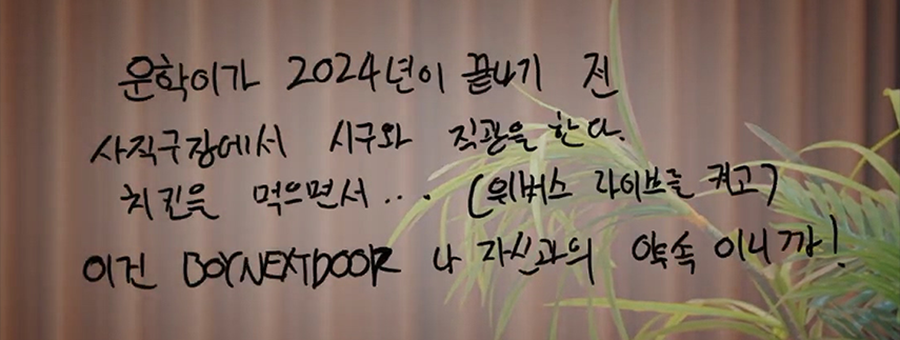 운학이가 2024년이 끝나기 전
사직구장에서 시구와 직관을 한다.
치킨을 먹으면서... (위버스 라이브를 켜고)
이건 BOYNEXTDOOR 나 자신과의 약속이니까!